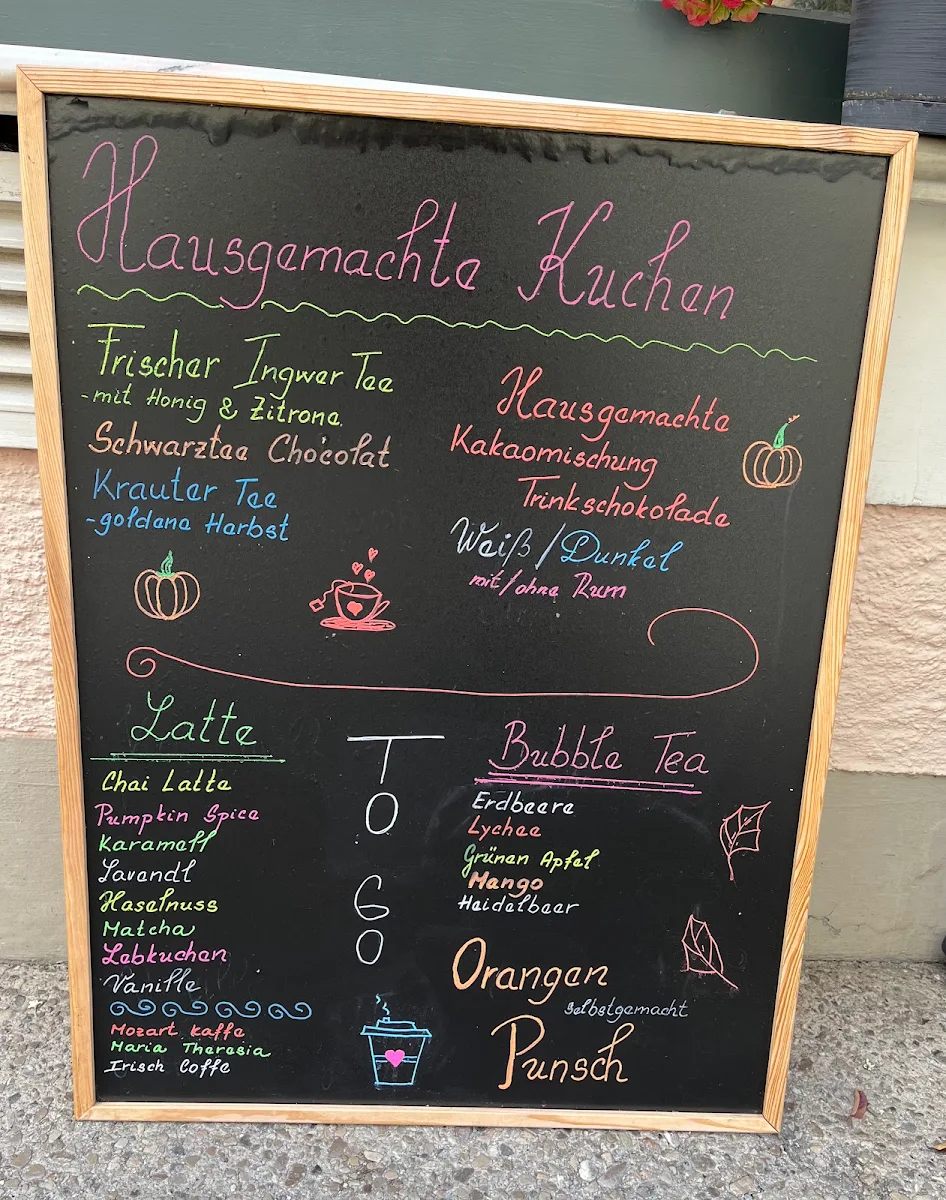 Hausgemachte Kuchen
Frischer Ingwer Tee
-mit Honig & Zitrone
Schwarztee Chocolat
Krauter Tee
-goldene Herbst
Hausgemachte
Kakaomischung
Trinkschokolade
Weiß / Dunkel
mit/ohne Rum
Latte
Chai Latte
Pumpkin Spice
Karamell
Lavendl
Haselnuss
Matcha
Lebkuchen
Vanille
Mozart kaffe
Maria Theresia
Irisch Coffe
T
O
G
O
Bubble Tea
Erdbeere
Lychee
Grünen Apfel
Mango
Heidelbeer
Orangen
selbstgemacht
Punsch